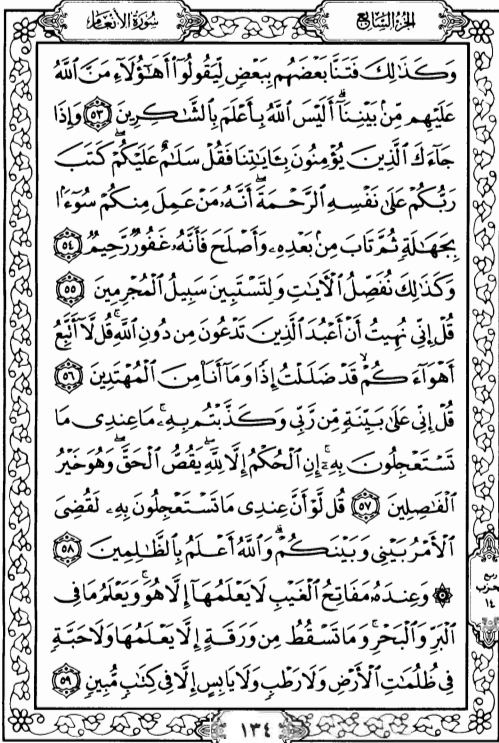 سُورَةُ الأَنْعَامِ الجُزْءُ السَّابِعُ
وَكَذَٰلِكَ فَتَنَّا بَعْضَهُم بِبَعْضٍ لِّيَقُولُوٓا۟ أَهَٰٓؤُلَآءِ مَنَّ ٱللَّهُ
عَلَيْهِم مِّنۢ بَيْنِنَآ ۗ أَلَيْسَ ٱللَّهُ بِأَعْلَمَ بِٱلشَّٰكِرِينَ ٥٣ وَإِذَا
جَآءَكَ ٱلَّذِينَ يُؤْمِنُونَ بِـَٔايَٰتِنَا فَقُلْ سَلَٰمٌ عَلَيْكُمْ ۖ كَتَبَ
رَبُّكُمْ عَلَىٰ نَفْسِهِ ٱلرَّحْمَةَ ۖ أَنَّهُۥ مَنْ عَمِلَ مِنكُمْ سُوٓءًۢا
بِجَهَٰلَةٍ ثُمَّ تَابَ مِنۢ بَعْدِهِۦ وَأَصْلَحَ فَأَنَّهُۥ غَفُورٌ رَّحِيمٌ ٥٤
وَكَذَٰلِكَ نُفَصِّلُ ٱلْـَٔايَٰتِ وَلِتَسْتَبِينَ سَبِيلُ ٱلْمُجْرِمِينَ ٥٥
قُلْ إِنِّى نُهِيتُ أَنْ أَعْبُدَ ٱلَّذِينَ تَدْعُونَ مِن دُونِ ٱللَّهِ ۚ قُل لَّآ أَتَّبِعُ
أَهْوَآءَكُمْ ۙ قَدْ ضَلَلْتُ إِذًا وَمَآ أَنَا۠ مِنَ ٱلْمُهْتَدِينَ ٥٦
قُلْ إِنِّى عَلَىٰ بَيِّنَةٍ مِّن رَّبِّى وَكَذَّبْتُم بِهِۦ ۚ مَا عِندِى مَا
تَسْتَعْجِلُونَ بِهِۦٓ ۚ إِنِ ٱلْحُكْمُ إِلَّا لِلَّهِ ۖ يَقُصُّ ٱلْحَقَّ ۖ وَهُوَ خَيْرُ
ٱلْفَٰصِلِينَ ٥٧ قُل لَّوْ أَنَّ عِندِى مَا تَسْتَعْجِلُونَ بِهِۦ لَقُضِىَ
ٱلْأَمْرُ بَيْنِى وَبَيْنَكُمْ ۗ وَٱللَّهُ أَعْلَمُ بِٱلظَّٰلِمِينَ ٥٨
۞ وَعِندَهُۥ مَفَاتِحُ ٱلْغَيْبِ لَا يَعْلَمُهَآ إِلَّا هُوَ ۚ وَيَعْلَمُ مَا فِى
ٱلْبَرِّ وَٱلْبَحْرِ ۚ وَمَا تَسْقُطُ مِن وَرَقَةٍ إِلَّا يَعْلَمُهَا وَلَا حَبَّةٍ
فِى ظُلُمَٰتِ ٱلْأَرْضِ وَلَا رَطْبٍ وَلَا يَابِسٍ إِلَّا فِى كِتَٰبٍ مُّبِينٍ ٥٩
ربع
الحزب
١٤
١٣٤